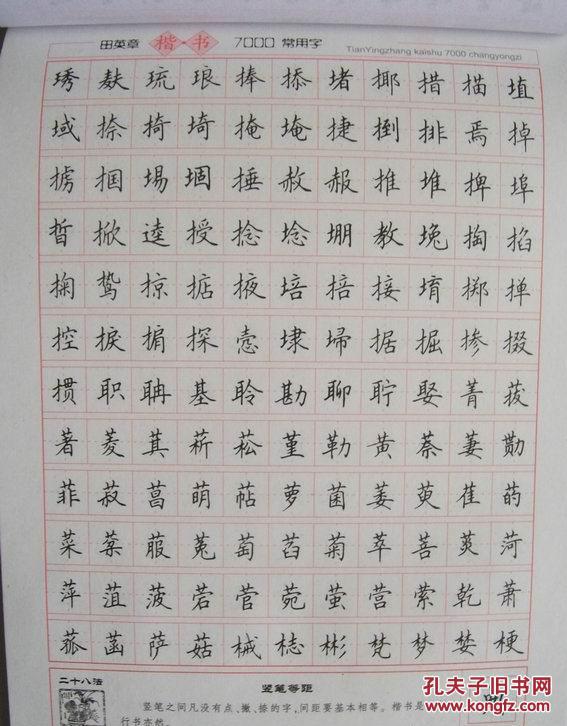 田英章 楷·书 7000 常用字
TianYingzhang kaishu 7000 changyongzi
琇 麸 琉 琅 捧 掭 堵 揶 措 描 埴
域 捺 掎 埼 掩 埯 捷 捯 排 焉 掉
掳 掴 埸 堌 捶 赦 赧 推 堆 捭 埠
晢 掀 逵 授 捻 埝 堋 教 堍 掏 掐
掬 鸷 掠 掂 掖 培 掊 接 堉 掷 掸
控 捩 掮 探 悫 埭 埽 据 掘 掺 掇
掼 职 聃 基 聆 勘 聊 聍 娶 菁 菝
著 菱 萁 菥 菘 堇 勒 黄 萘 萋 勚
菲 菽 菖 萌 萜 萝 菌 萎 萸 萑 菂
菜 棻 菔 菟 萄 萏 菊 萃 菩 菼 菏
萍 菹 菠 菪 菅 菀 萤 营 萦 乾 萧
菰 菡 萨 菇 械 梽 彬 梵 梦 婪 梗
二十八法
竖笔等距
竖笔之间凡没有点、撇、捺的字,间距要基本相等。楷书是
行书亦然。
孔夫子旧书网
www.kongfz.com